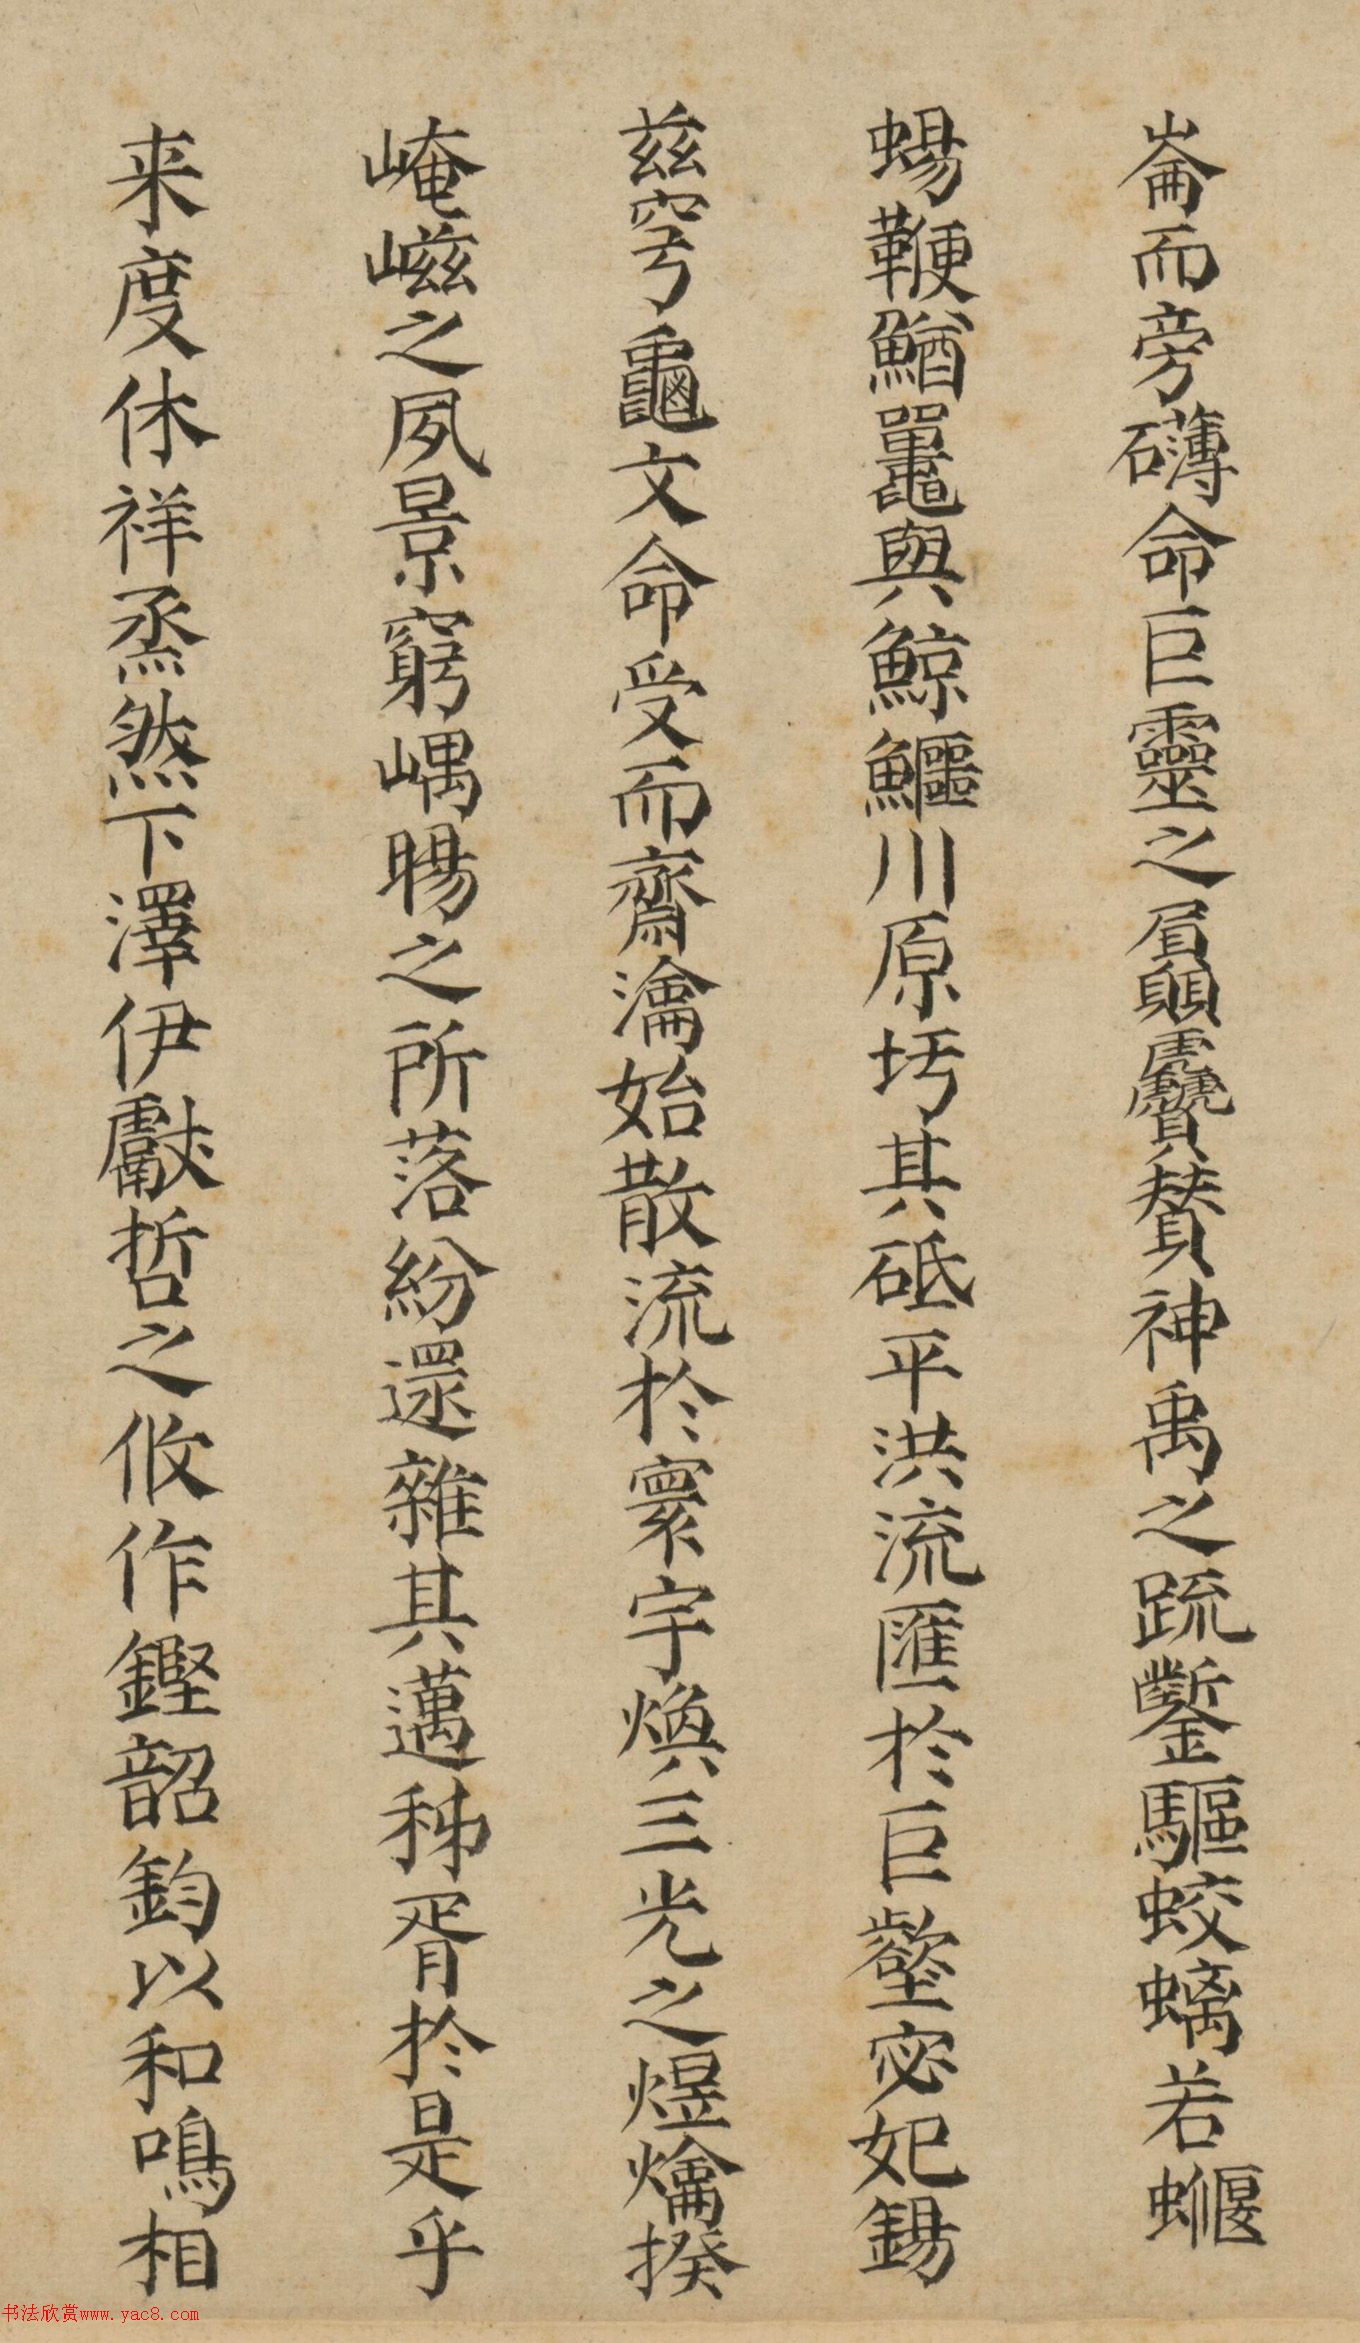 崙而旁礴命巨靈之贔贙贊神禹之疏鑿驅蛟螭若蝘
蜴鞭鰌鼉與鯨鱷川原圬其砥平洪流匯於巨壑宓妃錫
茲穹龜文命受而齋瀹始散流於寰宇煥三光之煜爚揆
崦嵫之夙景窮嵎暘之所落紛還雜其邁秭胥於是乎
来度休祥烝然下澤伊獻哲之攸作鏗韶鈞以和鳴相
书法欣赏www.yac8.com